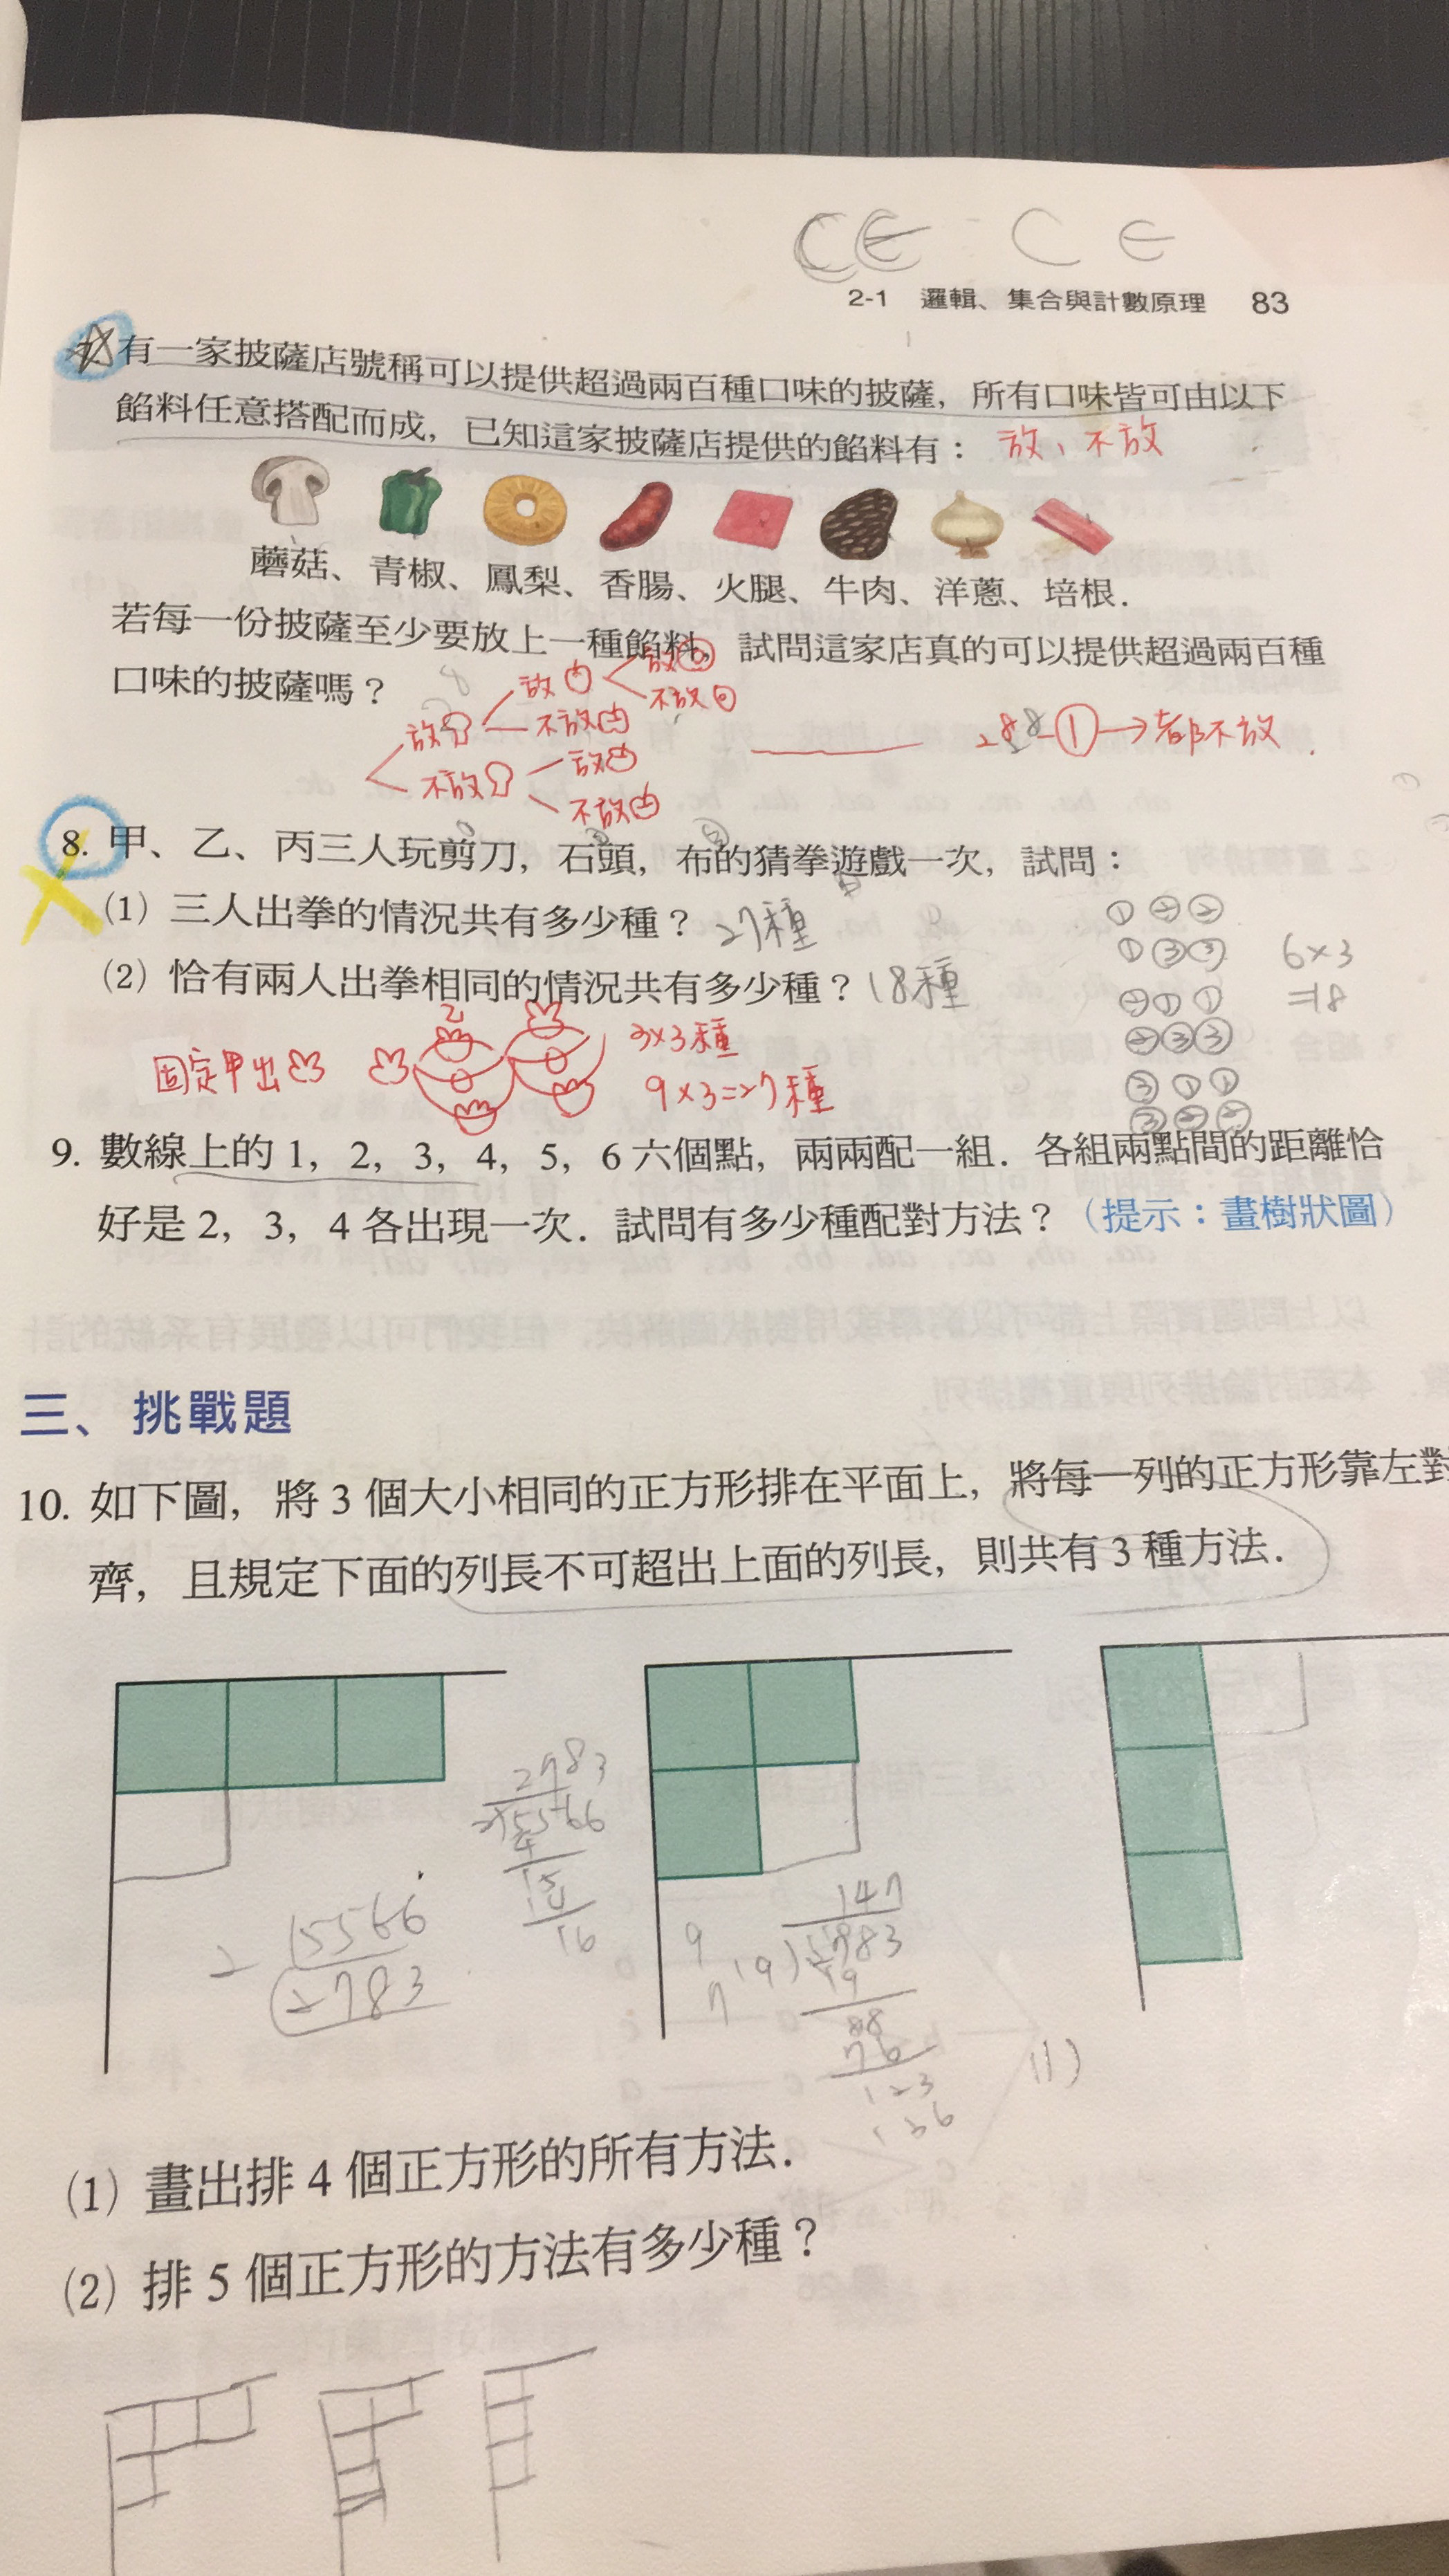 CE C E
2-1 邏輯、集合與計數原理 83
有一家披薩店號稱可以提供超過兩百種口味的披薩，所有口味皆可由以下
餡料任意搭配而成，已知這家披薩店提供的餡料有： 放、不放
蘑菇、青椒、鳳梨、香腸、火腿、牛肉、洋蔥、培根．
若每一份披薩至少要放上一種餡料，試問這家店真的可以提供超過兩百種
口味的披薩嗎？
放 放 放
不放
不放
不放 放
不放
2⁸-①→都不放
8. 甲、乙、丙三人玩剪刀，石頭，布的猜拳遊戲一次，試問：
(1) 三人出拳的情況共有多少種？ 27種
(2) 恰有兩人出拳相同的情況共有多少種？ 18種
① ② ②
① ③ ③
② ① ①
② ③ ③
③ ① ①
③ ② ②
6×3
=18
固定甲出
乙
3×3種
9×3=27種
9. 數線上的 1，2，3，4，5，6 六個點，兩兩配一組．各組兩點間的距離恰
好是 2，3，4 各出現一次．試問有多少種配對方法？（提示：畫樹狀圖）
三、挑戰題
10. 如下圖，將 3 個大小相同的正方形排在平面上，將每一列的正方形靠左對
齊，且規定下面的列長不可超出上面的列長，則共有 3 種方法．
2783
2)5566
4
15
14
16
2 5566
2783
147
19)2783
19
88
76
123
9
7
(1)
(1) 畫出排 4 個正方形的所有方法．
(2) 排 5 個正方形的方法有多少種？